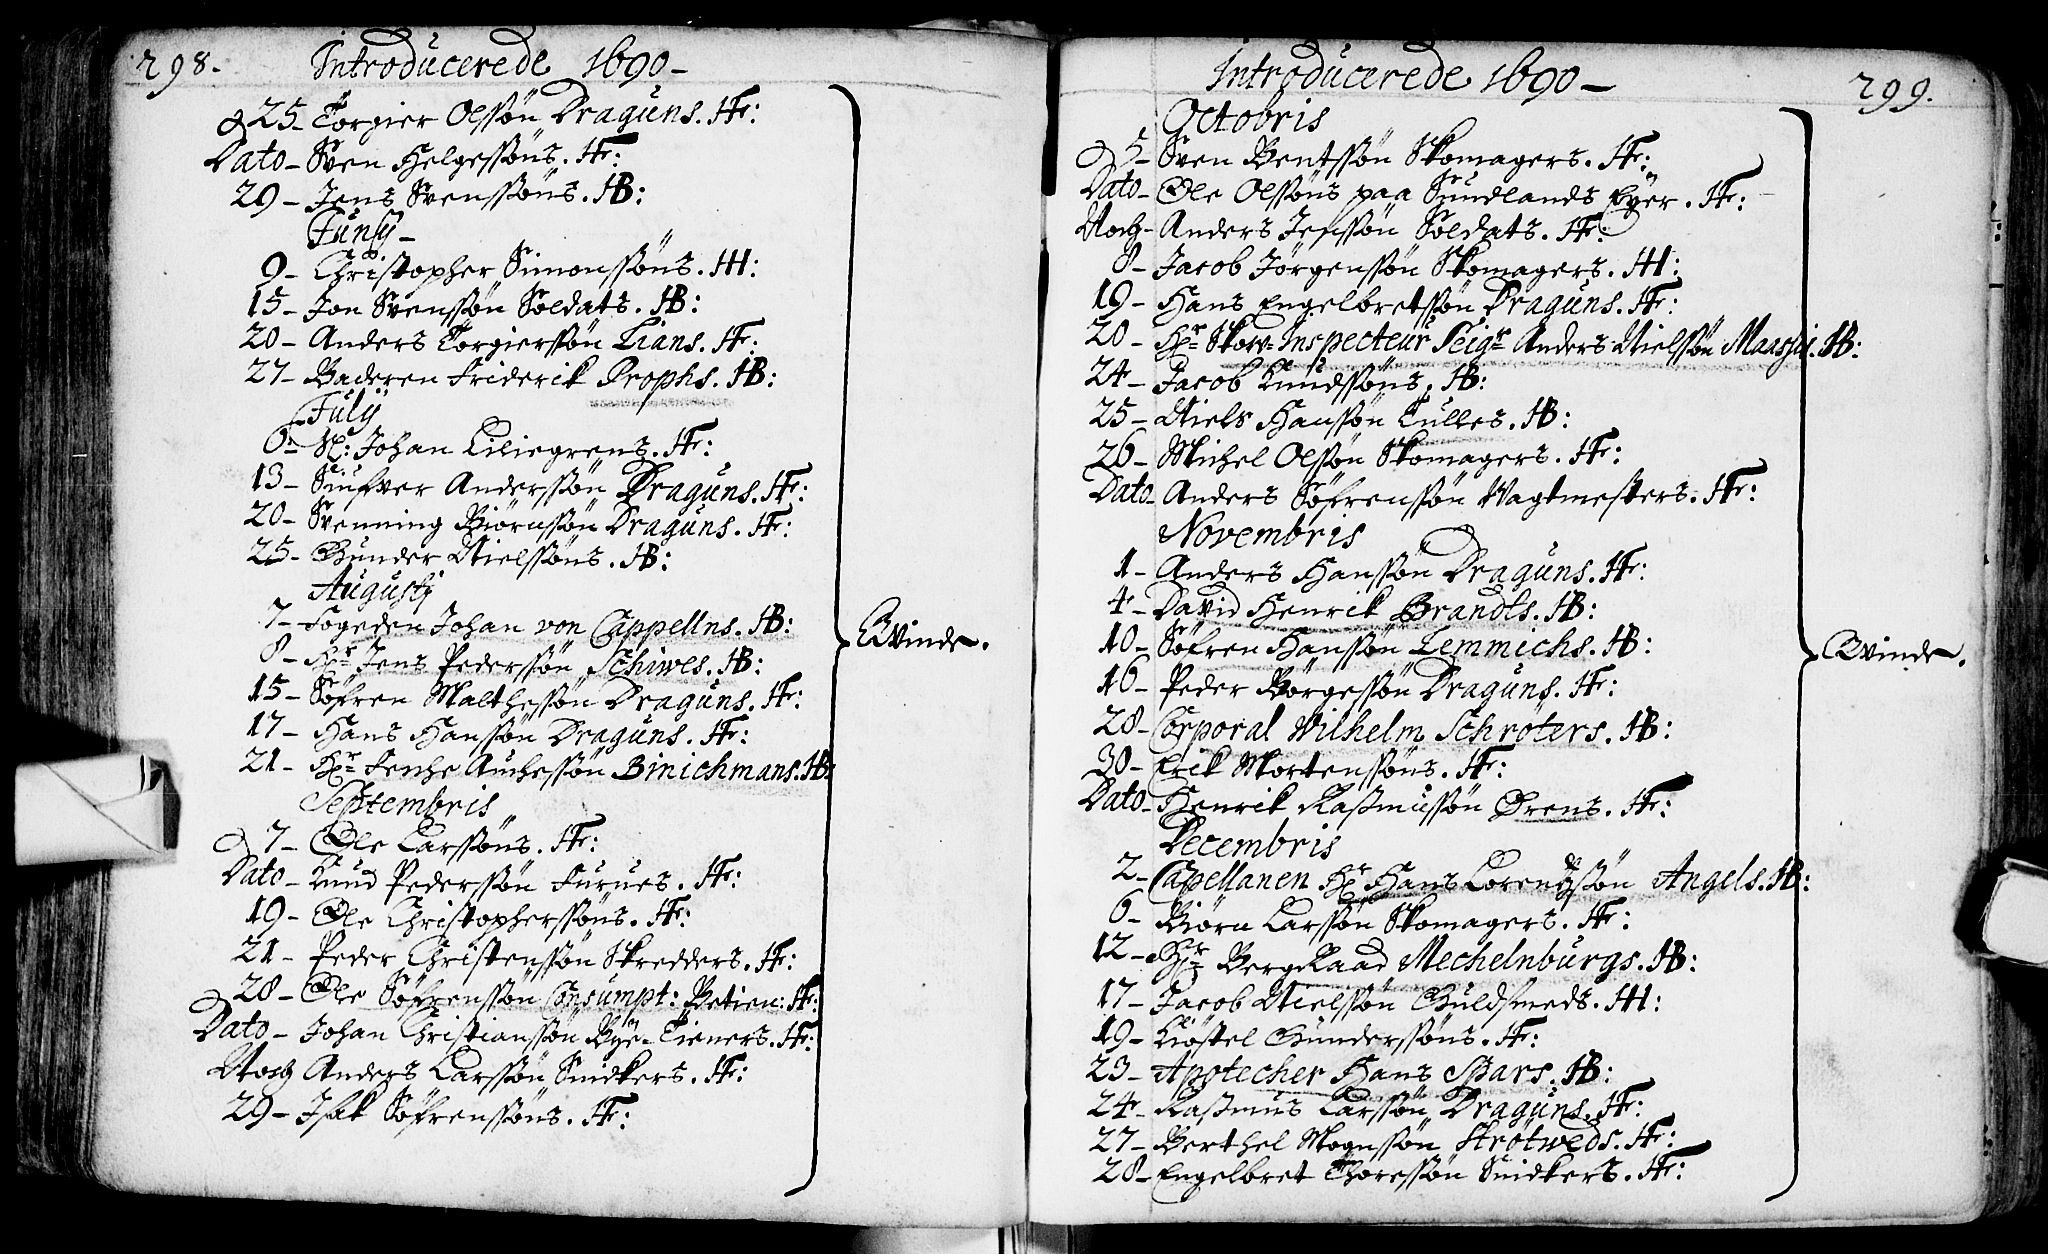 298.
Introducerede 1690
25 Torgier Olssøn Draguns. HF:
Dato Sven Helgessøns. HF:
29 Jens Svenssøns. HB:
Junij
9 Christopher Simonssøns. HH:
15 Jon Svenssøn Soldats. HB:
20 Anders Torgierssøn Lians. HF:
27 Baderen Friderik Prophs. HB:
Julij
6 M: Johan Liliegrens. HF:
13 Siufver Anderssøn Draguns. HF:
20 Svenning Biørnssøn Draguns. HF:
25 Gunder Nielssøns. HB:
Augustj
7 Fogeden Johan von Cappellns. HB:
8 Hr Jens Pederssøn Schiwes. HB:
15 Søfren Malthessøn Draguns. HF:
17 Hans Hanssøn Draguns. HF:
21 Hr Auchessøn Brnichmans. HB:
Septembris
7 Ole Larssøns. HF:
Dato Knud Pederssøn Furues. HF:
19 Ole Christopherssøns. HF:
21 Peder Christenssøn Skredders. HF:
28 Ole Søfrenssøn Consumpt: Betien: HF:
Dato Johan Christianssøn Bye-Tieners. HF:
Noch Anders Larssøn Snidkers. HF:
29 Isak Søfrenssøns. HF:
Qvinde.
Introducerede 1690
299.
Octobris
5 Sven Bentssøn Skomagers. HF:
Dato Ole Olssøns paa Sundlands Eyer. HF:
Noch Anders Jenssøn Soldats. HF:
8 Jacob Jørgenssøn Skomagers. HH:
19 Hans Engelbretssøn Draguns. HF:
20 Hr Skow-Inspecteur Seigr Anders Nielssøn Maassis. HB:
24 Jacob Knudssøns. HB:
25 Niels Hanssøn Tulles. HB:
26 Michel Olssøn Skomagers. HF:
Dato Anders Søfrenssøn Vagtmesters. HF:
Novembris
1 Anders Hanssøn Draguns. HF:
4 David Henrik Brandts. HB:
10 Søfren Hanssøn Lemmichs. HB:
16 Peder Børgessøn Draguns. HF:
28 Corporal Wilhelm Schrøters. HB:
30 Erik Mortenssøns. HF:
Dato Henrik Rasmussøn Ørens. HF:
Decembris
2 Capellanen Hr Hans Lorendssøn Angels. HB:
6 Biørn Larssøn Skomagers. HF:
12 Hr BergRaad Mechelnburgs. HB:
17 Jacob Nielssøn Guldsmeds. HH:
19 Kiøstel Gunderssøns. HF:
23 Apotecher Hans Spars. HB:
24 Rasmus Larssøn Draguns. HF:
27 Berthel Mognssøn Strøtweds. HF:
28 Engelbret Thoressøn Snidkers. HF:
Qvinde.